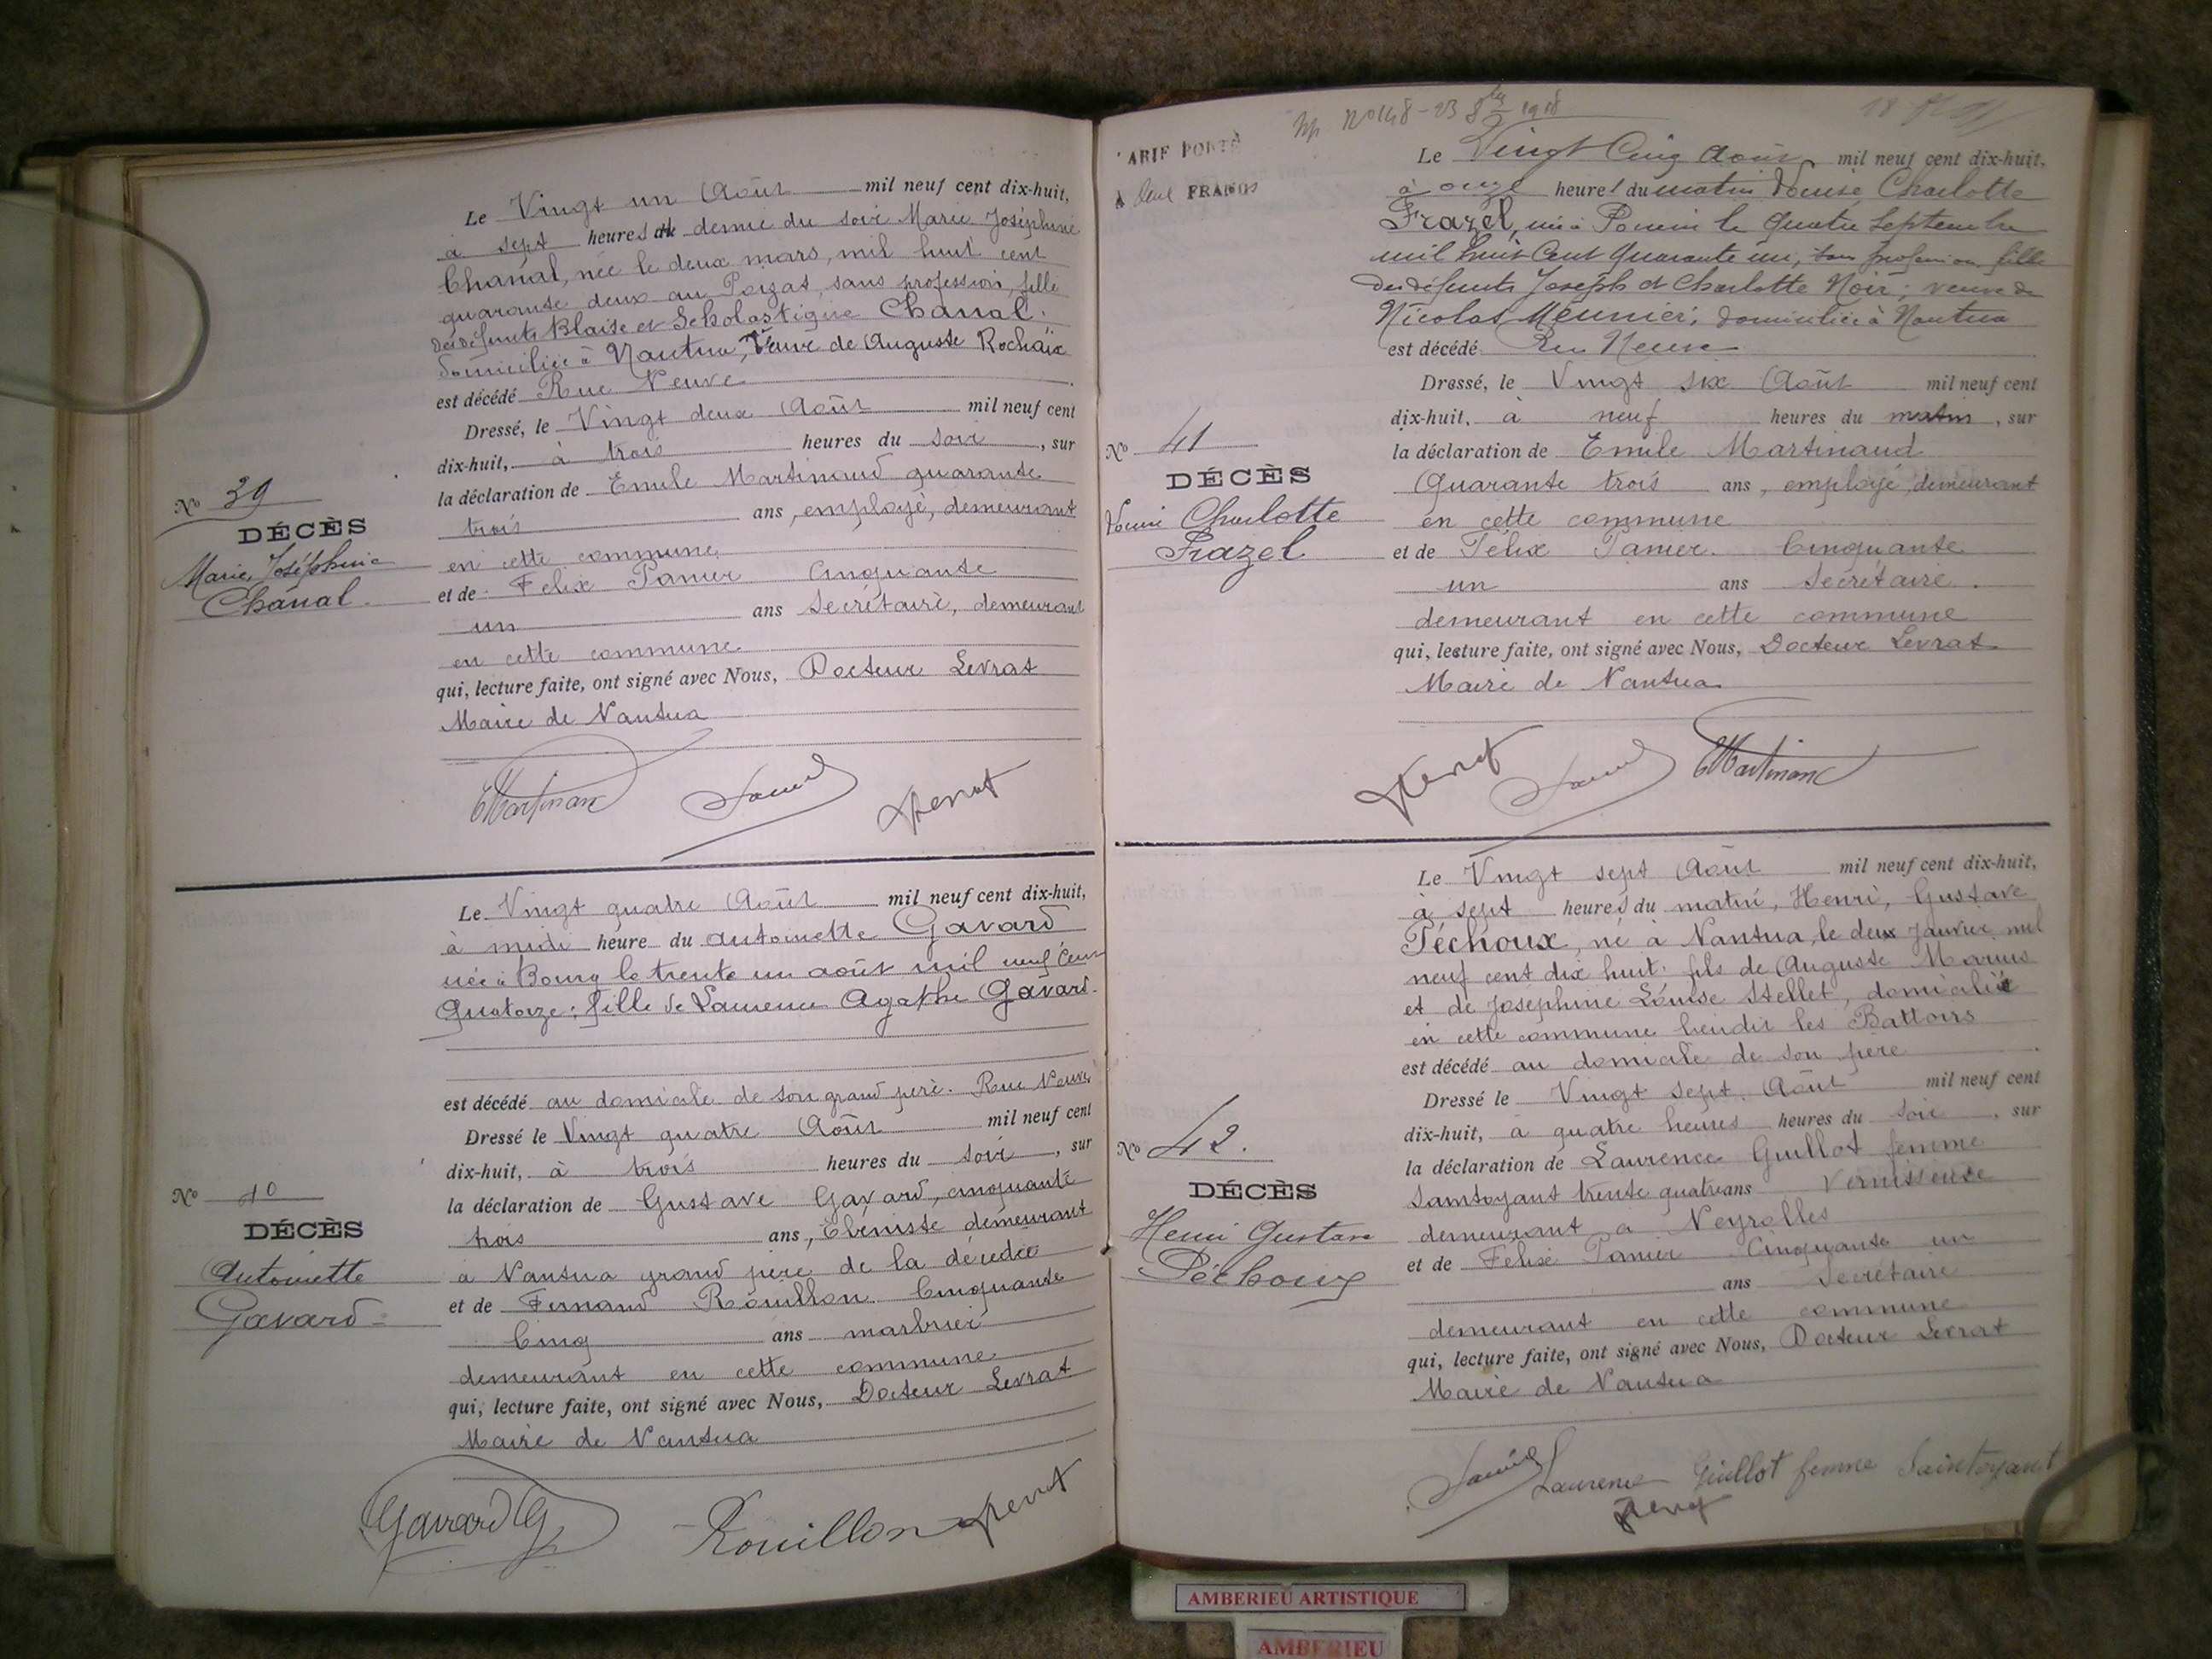 Le Vingt un Août mil neuf cent dix-huit,
à sept heures demie du soir Marie Joséphine
Chanal, née le deux mars, mil huit cent
quarante deux au Poizat, sans profession, fille
des défunts Blaise et Scholastique Chanal.
domiciliée à Nantua, Veuve de Auguste Rochaix
est décédé Rue Neuve
Dressé, le Vingt deux Août mil neuf cent
dix-huit, à trois heures du soir, sur
la déclaration de Emile Martinaud quarante
trois ans, employé, demeurant
en cette commune
et de Félix Panier Cinquante
un ans Secrétaire, demeurant
en cette commune.
qui, lecture faite, ont signé avec Nous, Docteur Levrat
Maire de Nantua
No 39
DÉCÈS
Marie Joséphine
Chanal.
EMartinaud
Le Vingt quatre Août mil neuf cent dix-huit,
à midi heure du Antoinette Gavard
née à Bourg le trente un août mil neuf Cent
Quatorze; fille de Laurence Agathe Gavard.
est décédé au domicile de son grand père. Rue Neuve
Dressé le Vingt quatre Août mil neuf cent
dix-huit, à trois heures du soir, sur
la déclaration de Gustave Gavard, cinquante
trois ans, Ebéniste demeurant
à Nantua grand père de la décédée
et de Fernand Rouillon Cinquante
Cinq ans marbrier
demeurant en cette commune
qui, lecture faite, ont signé avec Nous, Docteur Levrat
Maire de Nantua
No 40
DÉCÈS
Antoinette
Gavard
Gavard G
Rouillon
No 148 - 23 8bre 1918
TARIF PORTÉ
A deux FRANCS
Le Vingt Cinq Août mil neuf cent dix-huit,
à onze heures du matin Louise Charlotte
Frazel, née à Pouin le quatre Septembre
mil huit Cent Quarante un, sans profession fille
des défunts Joseph et Charlotte Noir; veuve de
Nicolas Meunier; domiciliée à Nantua
est décédé Rue Neuve
Dressé, le Vingt six Août mil neuf cent
dix-huit, à neuf heures du matin, sur
la déclaration de Emile Martinaud
Quarante trois ans, employé, demeurant
en cette commune
et de Félix Panier. Cinquante
un ans Secrétaire.
demeurant en cette commune
qui, lecture faite, ont signé avec Nous, Docteur Levrat
Maire de Nantua
No 41
DÉCÈS
Louise Charlotte
Frazel
EMartinaud
Le Vingt sept Août mil neuf cent dix-huit,
à sept heures du matin, Henri, Gustave
Péchoux, né à Nantua, le deux Janvier mil
neuf cent dix huit. fils de Auguste Marius
et de Joséphine Louise Stellet, domicilié
en cette commune lieudit les Battoirs
est décédé au domicile de son père
Dressé le Vingt sept Août mil neuf cent
dix-huit, à quatre heures heures du soir, sur
la déclaration de Laurence Guillot femme
Saintoyant trente quatre ans Vernisseuse
demeurant à Neyrolles
et de Félix Panier Cinquante un
ans Secrétaire
demeurant en cette commune
qui, lecture faite, ont signé avec Nous, Docteur Levrat
Maire de Nantua
No 42.
DÉCÈS
Henri Gustave
Péchoux
Laurence Guillot femme Saintoyant
AMBERIEU ARTISTIQUE
AMBERIEU